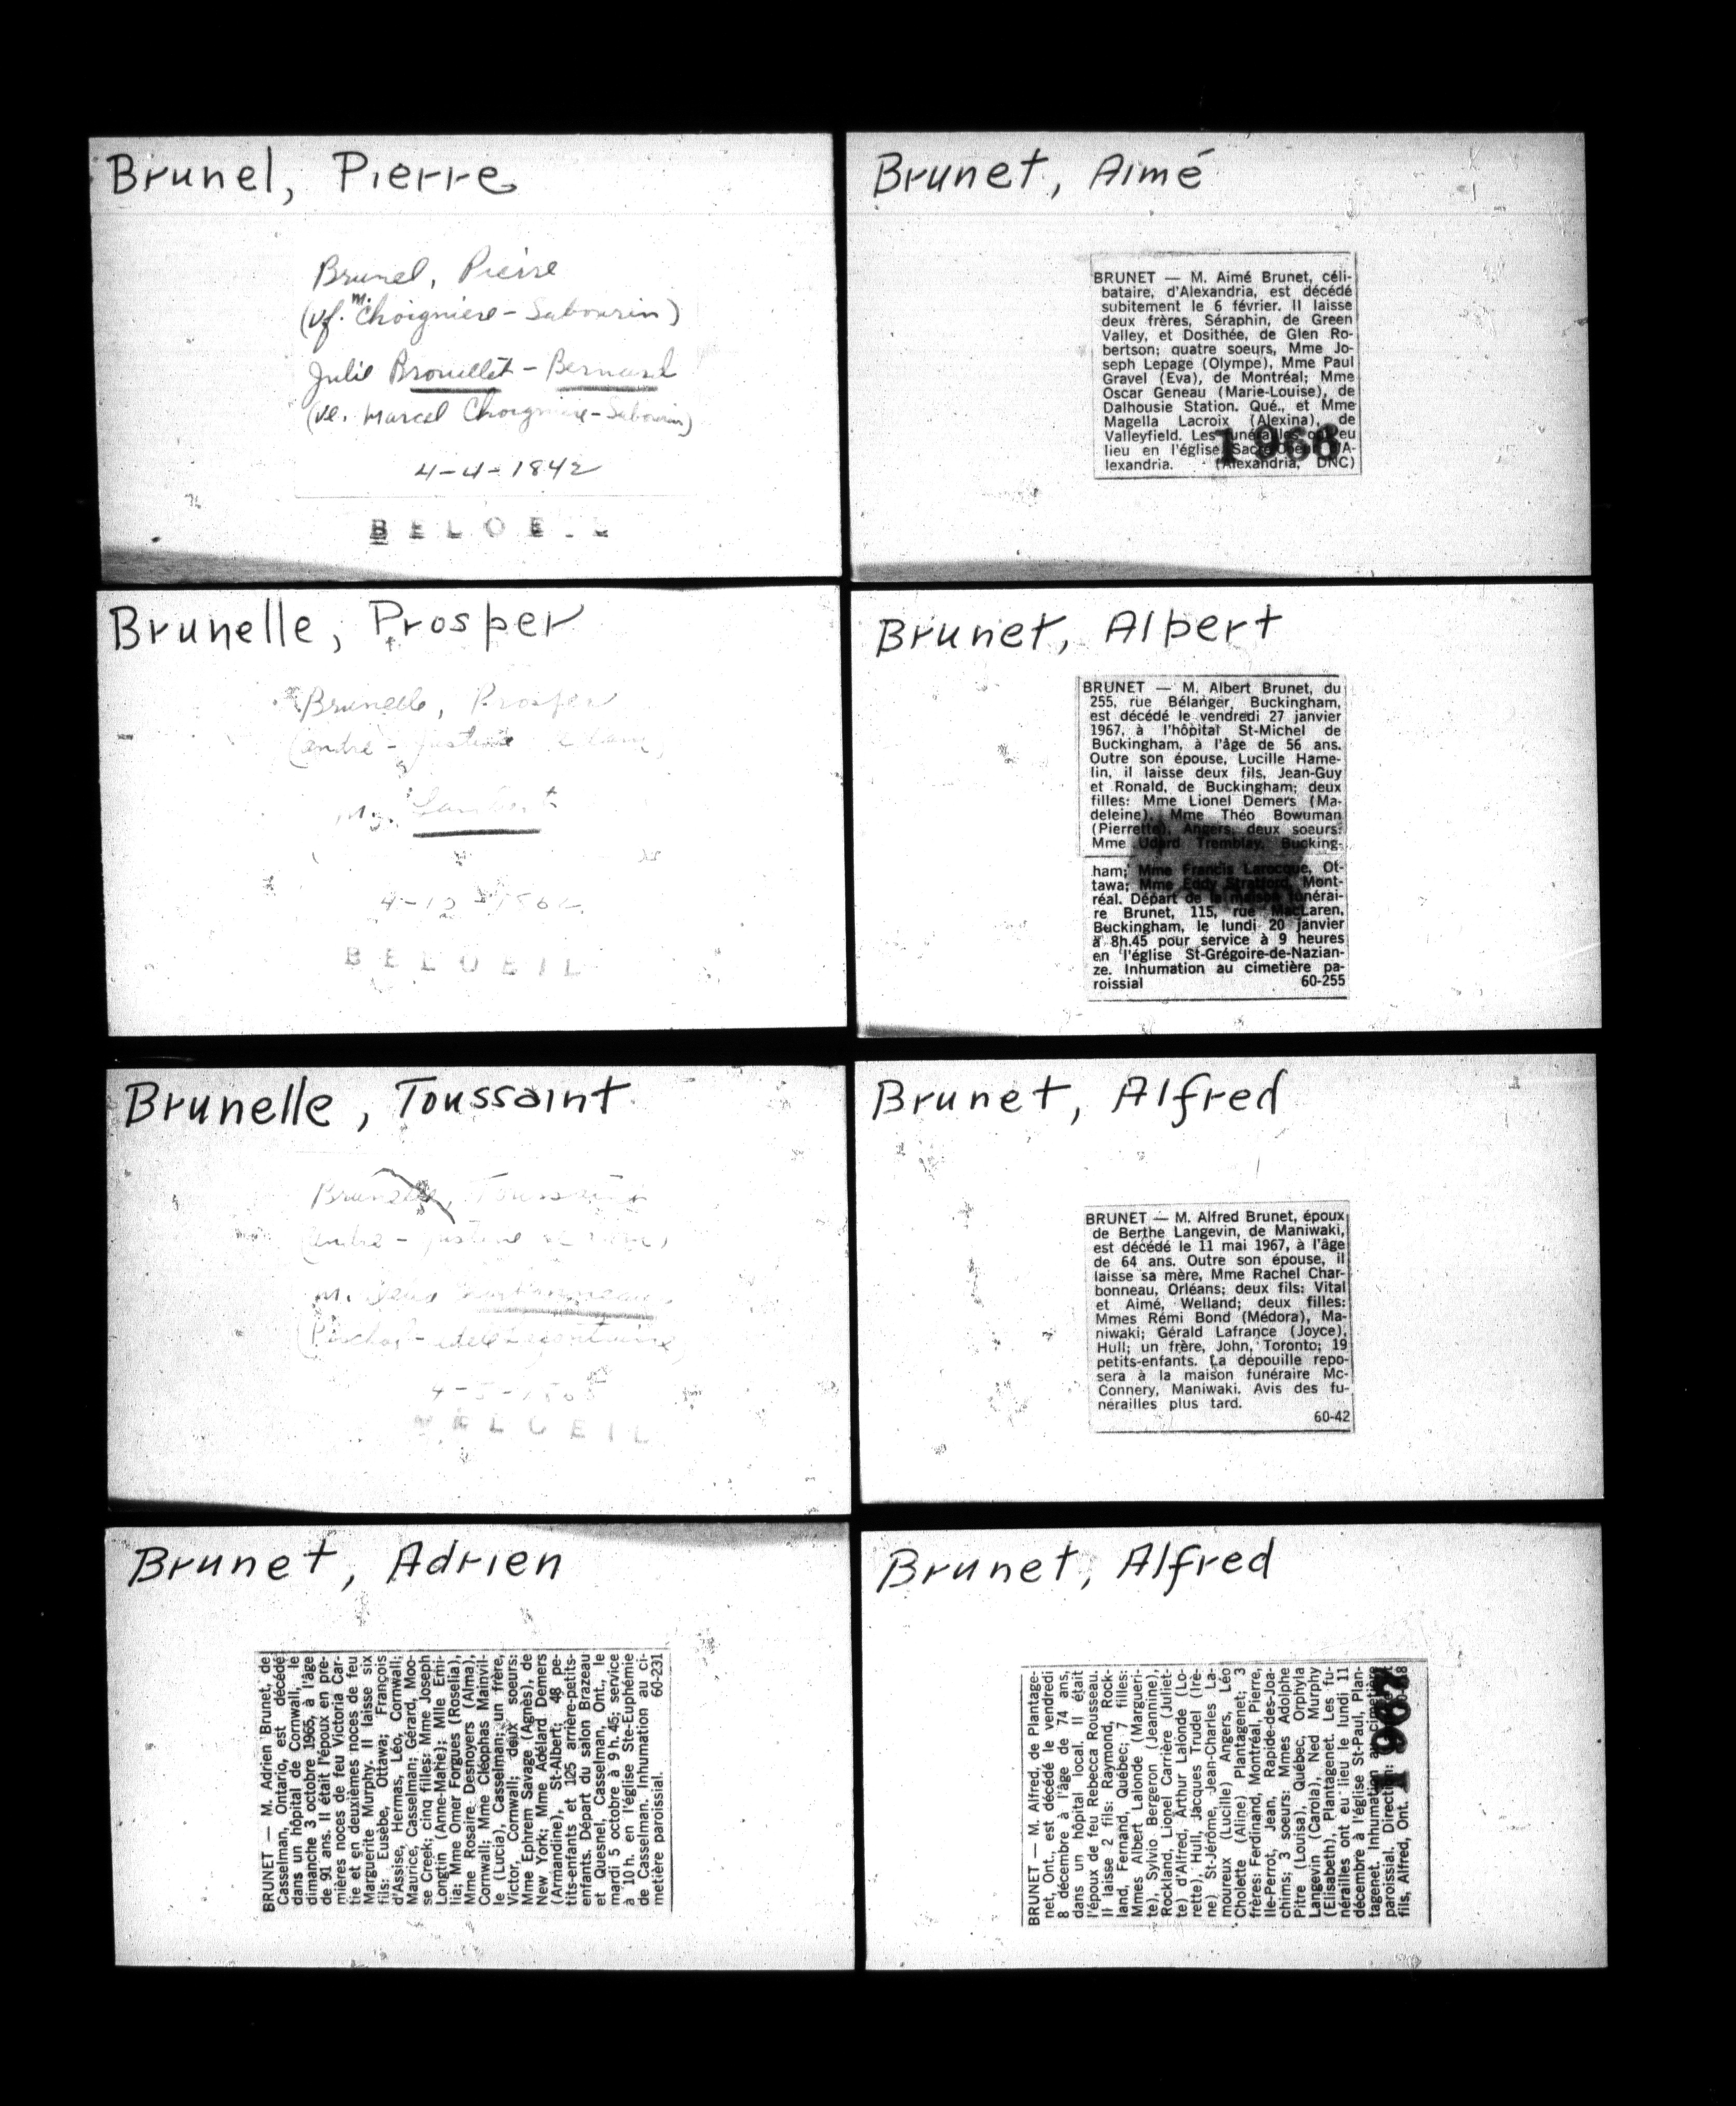 Brunel, Pierre
Brunel, Pierre
(vf. m. Choignière-Sabourin)
Julie Brouillet-Bernard
(ve. Marcel Choignière-Sabourin)
4-4-1842
BELOE.L
Brunelle, Prosper
Brunelle, Prosper
(andré - justine
m. Lambert
BELOEIL
Brunelle, Toussaint
Brunelle, Toussaint
(andré - justine
m.
BELOEIL
Brunet, Adrien
BRUNET — M. Adrien Brunet, de
Casselman, Ontario, est décédé
dans un hôpital de Cornwall, le
dimanche 3 octobre 1965, à l'âge
de 91 ans. Il était l'époux en pre-
mières noces de feu Victoria Car-
tie et en deuxièmes noces de feu
Marguerite Murphy. Il laisse six
fils: Eusèbe, Ottawa; François
d'Assise, Hermas, Léo, Cornwall;
Maurice, Casselman; Gérard, Moo-
se Creek; cinq filles: Mme Joseph
Longtin (Anne-Marie); Mlle Emi-
lia; Mme Omer Forgues (Roselia),
Mme Rosaire Desnoyers (Alma),
Cornwall; Mme Cléophas Mainvil-
le (Lucia), Casselman; un frère,
Victor, Cornwall; deux soeurs:
Mme Ephrem Savage (Agnès), de
New York; Mme Adélard Demers
(Armandine), St-Albert; 48 pe-
tits-enfants et 125 arrière-petits-
enfants. Départ du salon Brazeau
et Quesnel, Casselman, Ont., le
mardi 5 octobre à 9 h. 45; service
à 10 h. en l'église Ste-Euphémie
de Casselman. Inhumation au ci-
metière paroissial. 60-231
Brunet, Aimé
BRUNET — M. Aimé Brunet, céli-
bataire, d'Alexandria, est décédé
subitement le 6 février. Il laisse
deux frères, Séraphin, de Green
Valley, et Dosithée, de Glen Ro-
bertson; quatre soeurs, Mme Jo-
seph Lepage (Olympe), Mme Paul
Gravel (Eva), de Montréal; Mme
Oscar Geneau (Marie-Louise), de
Dalhousie Station. Qué., et Mme
Magella Lacroix (Alexina), de
Valleyfield. Les funérailles ont eu
lieu en l'église Sacré-Coeur d'A-
lexandria. (Alexandria, DNC)
1966
Brunet, Albert
BRUNET — M. Albert Brunet, du
255, rue Bélanger, Buckingham,
est décédé le vendredi 27 janvier
1967, à l'hôpital St-Michel de
Buckingham, à l'âge de 56 ans.
Outre son épouse, Lucille Hame-
lin, il laisse deux fils, Jean-Guy
et Ronald, de Buckingham; deux
filles: Mme Lionel Demers (Ma-
deleine), Mme Théo Bowuman
(Pierrette), Angers, deux soeurs:
Mme Udard Tremblay, Bucking-
ham; Mme Francis Larocque, Ot-
tawa; Mme Eddy Stratford, Mont-
réal. Départ de la maison funérai-
re Brunet, 115, rue MacLaren,
Buckingham, le lundi 20 janvier
à 8h.45 pour service à 9 heures
en l'église St-Grégoire-de-Nazian-
ze. Inhumation au cimetière pa-
roissial 60-255
Brunet, Alfred
BRUNET — M. Alfred Brunet, époux
de Berthe Langevin, de Maniwaki,
est décédé le 11 mai 1967, à l'âge
de 64 ans. Outre son épouse, il
laisse sa mère, Mme Rachel Char-
bonneau, Orléans; deux fils: Vital
et Aimé, Welland; deux filles:
Mmes Rémi Bond (Médora), Ma-
niwaki; Gérald Lafrance (Joyce),
Hull; un frère, John, Toronto; 19
petits-enfants. La dépouille repo-
sera à la maison funéraire Mc-
Connery, Maniwaki. Avis des fu-
nérailles plus tard.
60-42
Brunet, Alfred
BRUNET — M. Alfred, de Plantage-
net, Ont., est décédé le vendredi
8 décembre à l'âge de 74 ans,
dans un hôpital local. Il était
l'époux de feu Rebecca Rousseau.
Il laisse 2 fils: Raymond, Rock-
land, Fernand, Québec; 7 filles:
Mmes Albert Lalonde (Margueri-
te), Sylvio Bergeron (Jeannine),
Rockland, Lionel Carrière (Juliet-
te) d'Alfred, Arthur Lalonde (Lo-
rette), Hull, Jacques Trudel (Irè-
ne) St-Jérôme, Jean-Charles La-
moureux (Lucille) Angers, Léo
Cholette (Aline) Plantagenet; 3
frères: Ferdinand, Montréal, Pierre,
Ile-Perrot, Jean, Rapide-des-Joa-
chims; 3 soeurs: Mmes Adolphe
Pitre (Louisa), Québec, Orphyla
Langevin (Carola), Ned Murphy
(Elisabeth), Plantagenet. Les fu-
nérailles ont eu lieu le lundi 11
décembre à l'église St-Paul, Plan-
tagenet. Inhumation au cimetière
paroissial. Direction:
fils, Alfred, Ont.
1967